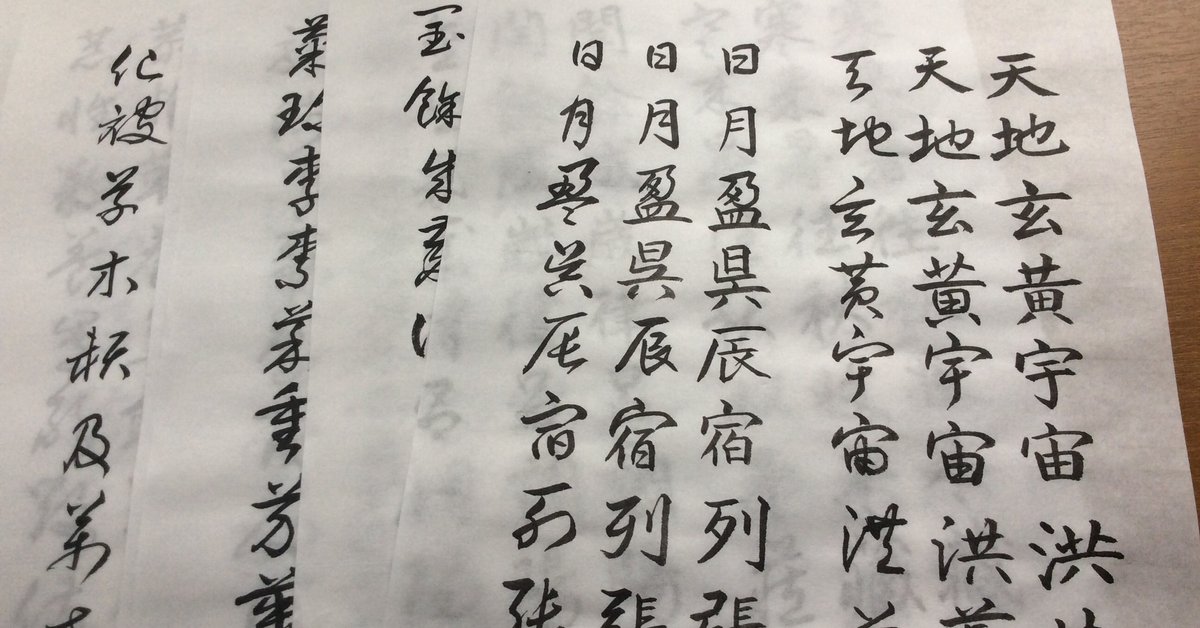 天地玄黄宇宙洪
天地玄黄宇宙洪
天地玄黄宇宙洪
日月盈昃辰宿列張
日月盈昃辰宿列張
日月盈昃辰宿列張
閏餘成歳
菓珍李柰菜重芥薑
化被草木頼及萬